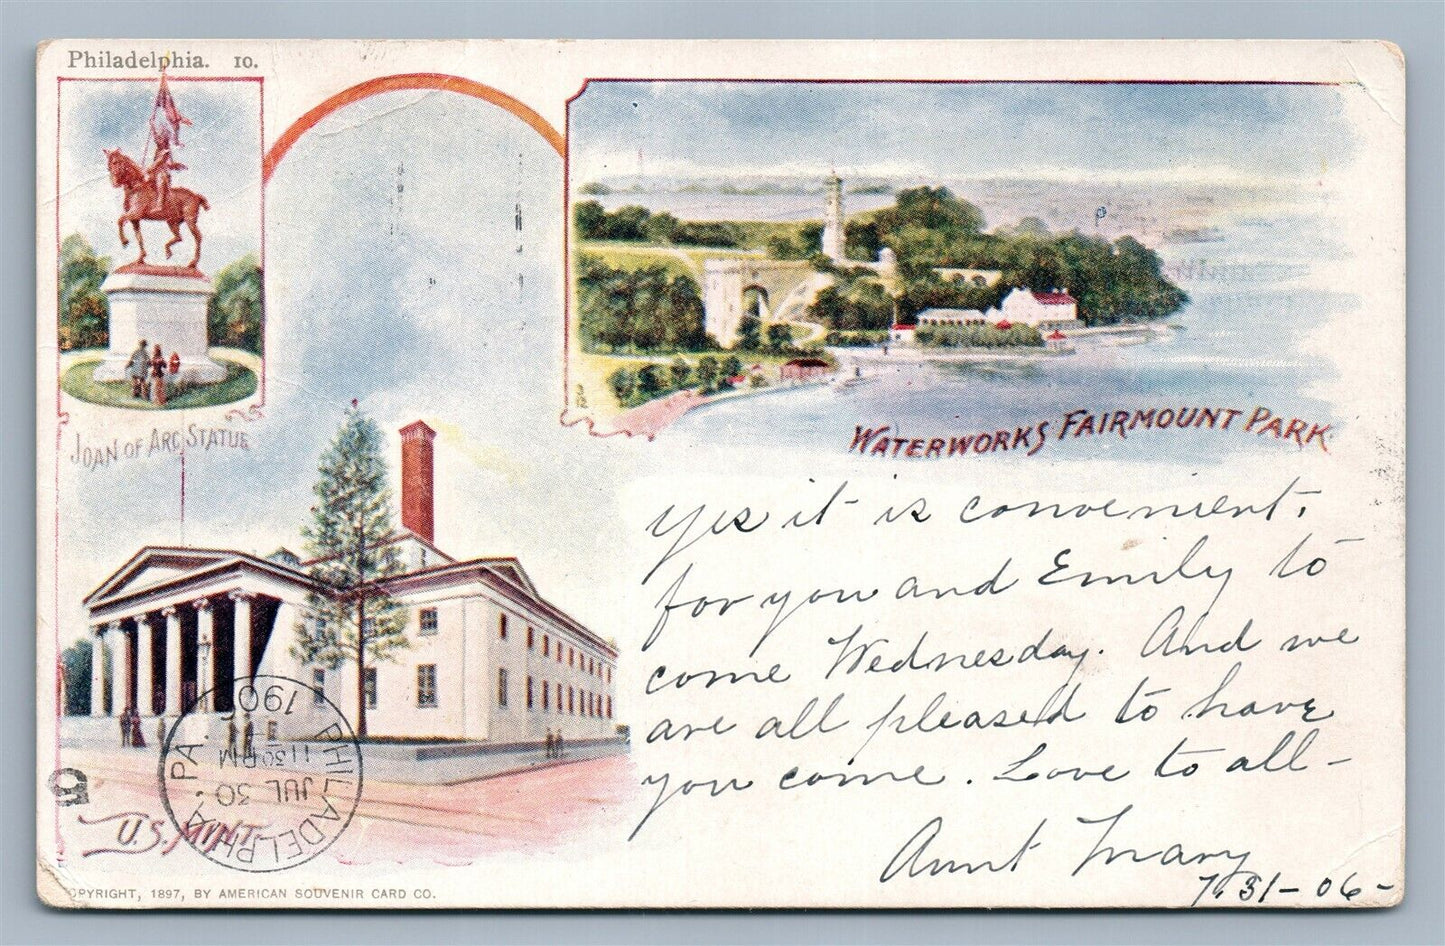 Philadelphia. 10.
JOAN OF ARC STATUE
WATERWORKS FAIRMOUNT PARK
yes it is convenient.
for you and Emily to
come Wednesday. And we
are all pleased to have
you come. Love to all-
Aunt Mary
7.31-06-
U.S. MINT.
PHILADELPHIA, PA.
JUL 30
11 30 PM
1906
5
OPYRIGHT, 1897, BY AMERICAN SOUVENIR CARD CO.